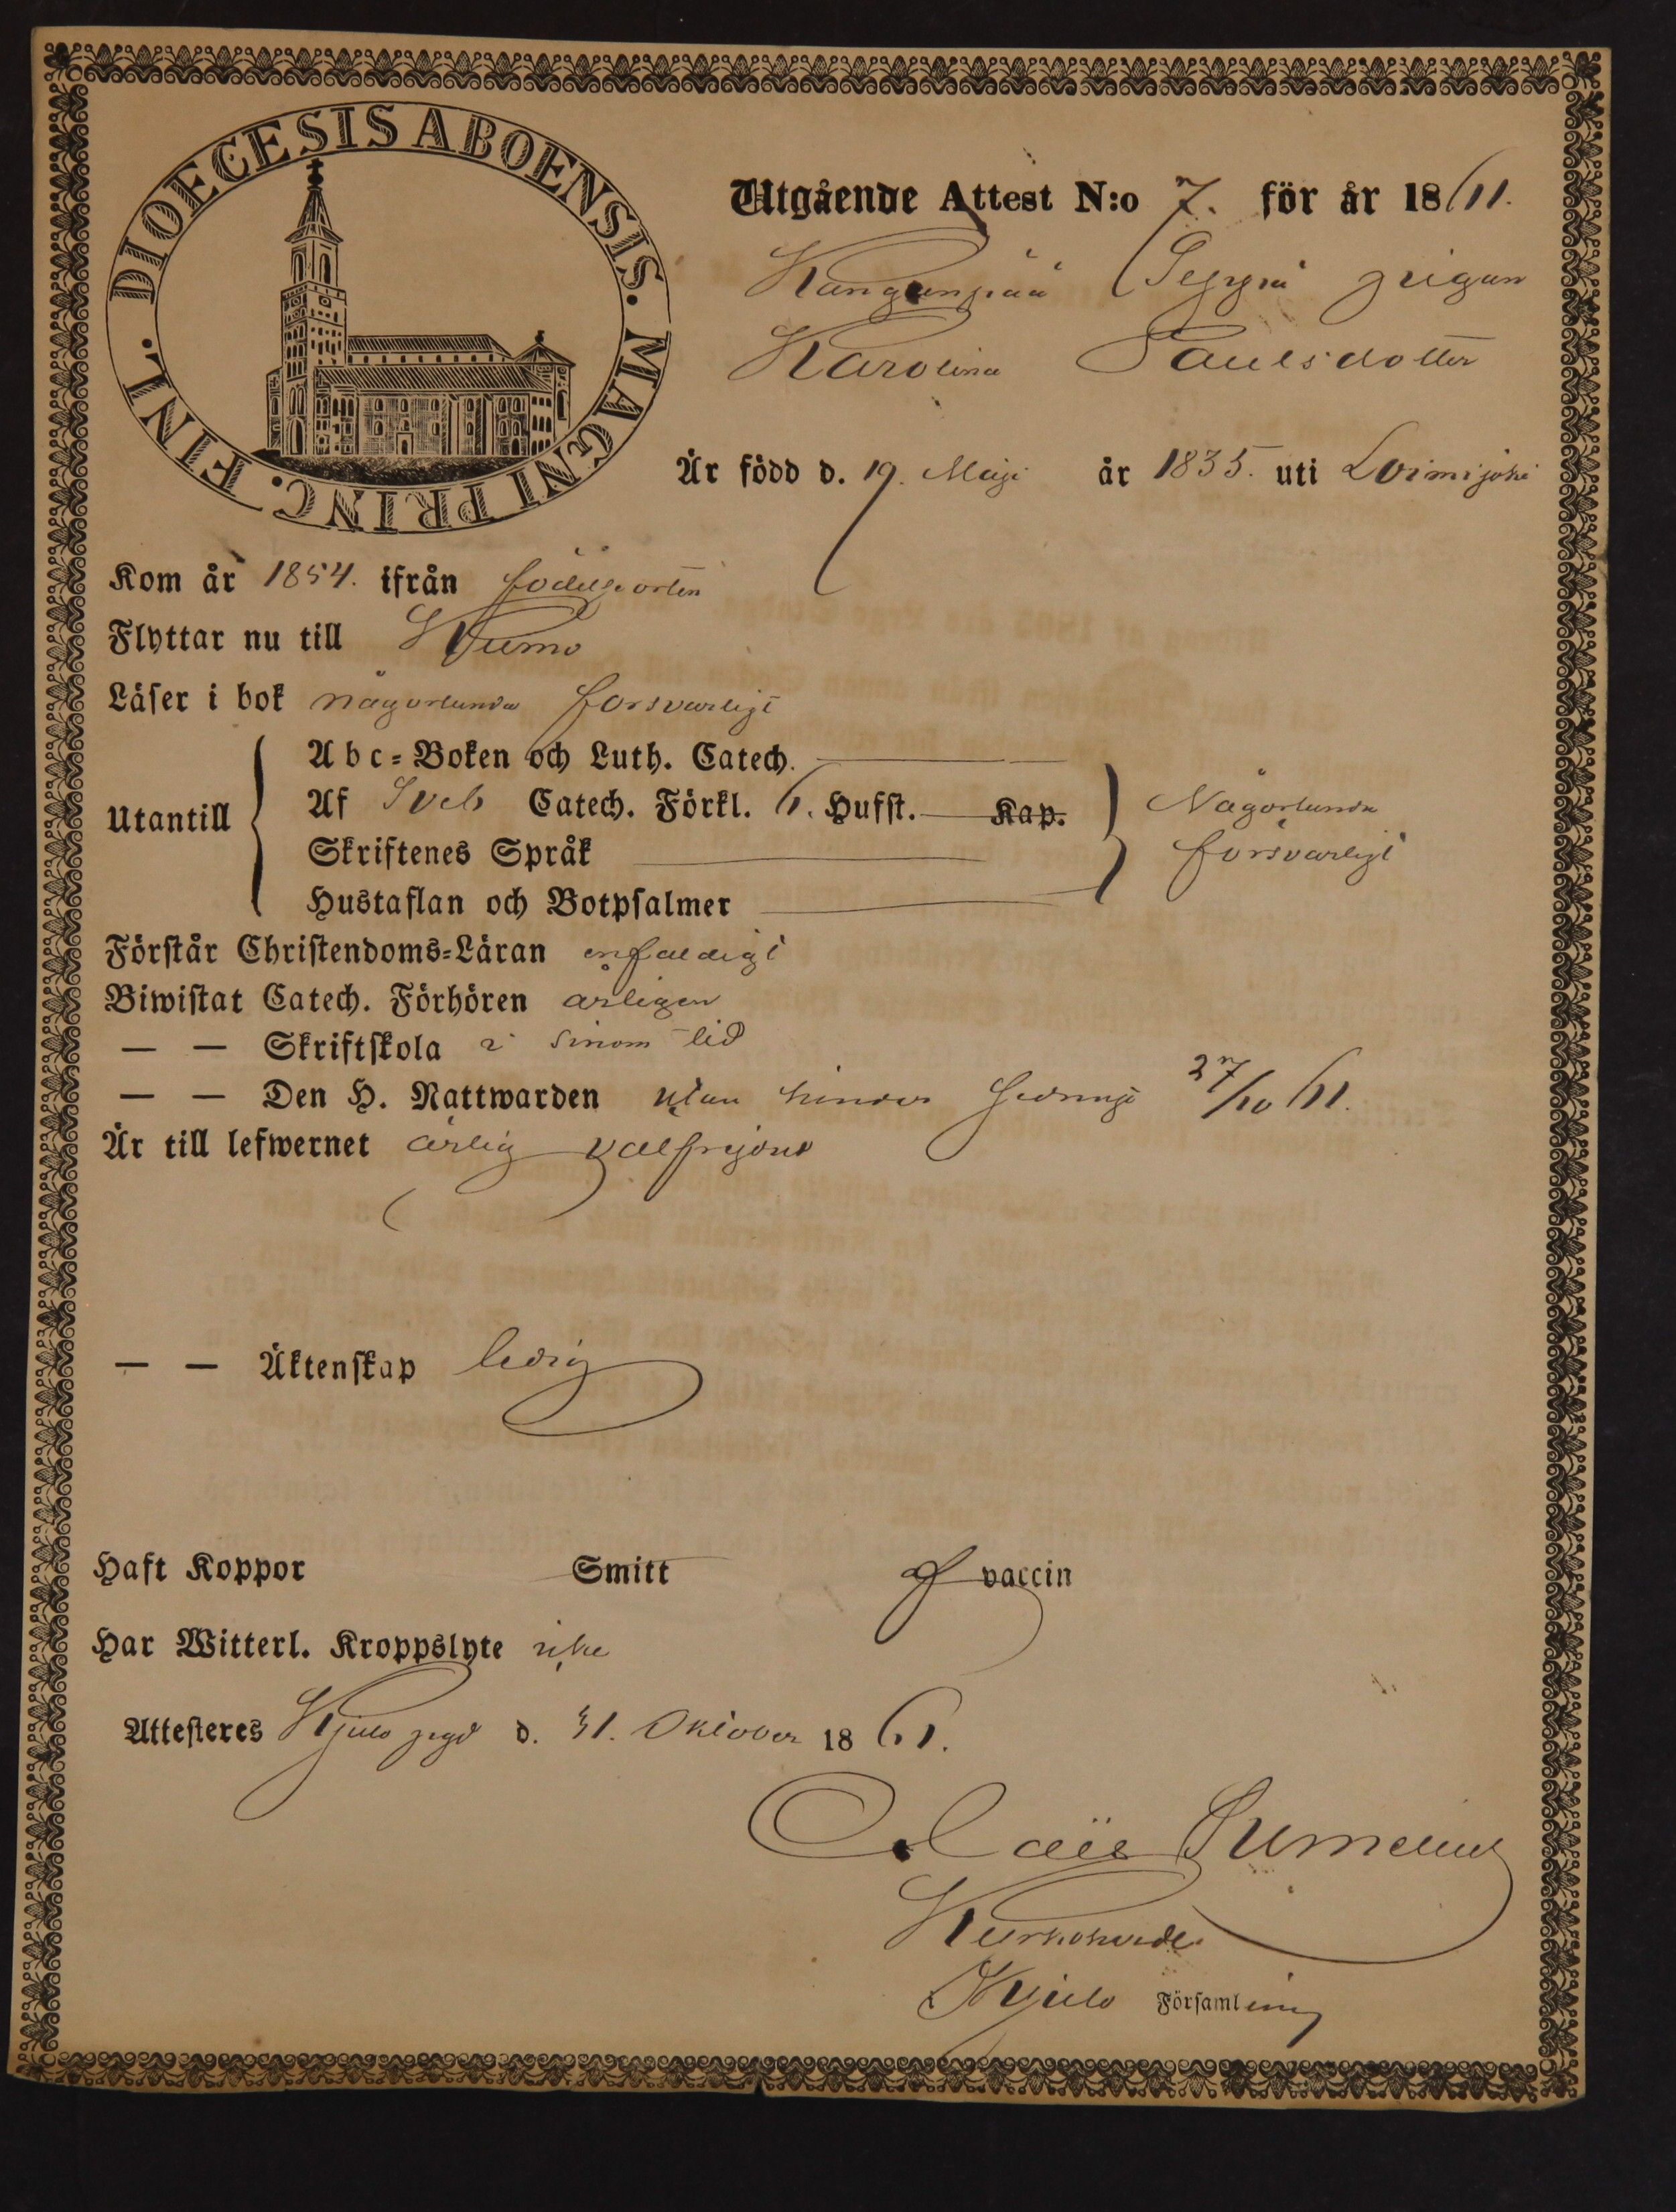 DIOECESIS ABOENSIS. MAGNI PRINC. FINL.
Utgående Attest N:o 7. för år 1861.
Kanganpää Seppä pigan
Karolina Paulsdotter
Är född d. 19. Maji år 1835. uti Loimijoki
Kom år 1854. ifrån födelseorten
Flyttar nu till Kumo
Läser i bok någorlunda försvarligt
Abc-Boken och Luth. Catech.
Utantill Af Sveb Catech. Förkl. 6. Hufst. Kap. Någorlunda
Skriftenes Språk försvarligt
Hustaflan och Botpsalmer
Förstår Christendoms-Läran enfaldigt
Biwistat Catech. Förhören årligen
— — Skriftskola i sinom tid
— — Den H. Nattwarden utan hinder 27/10 61.
Är till lefwernet ärlig välfrejdad
— — Äktenskap ledig
Haft Koppor Smitt vaccin
Har Witterl. Kroppslyte icke
Attesteres Kjulo d. 31. Oktober 1861.
Kyrkoherde
Kjulo Församling